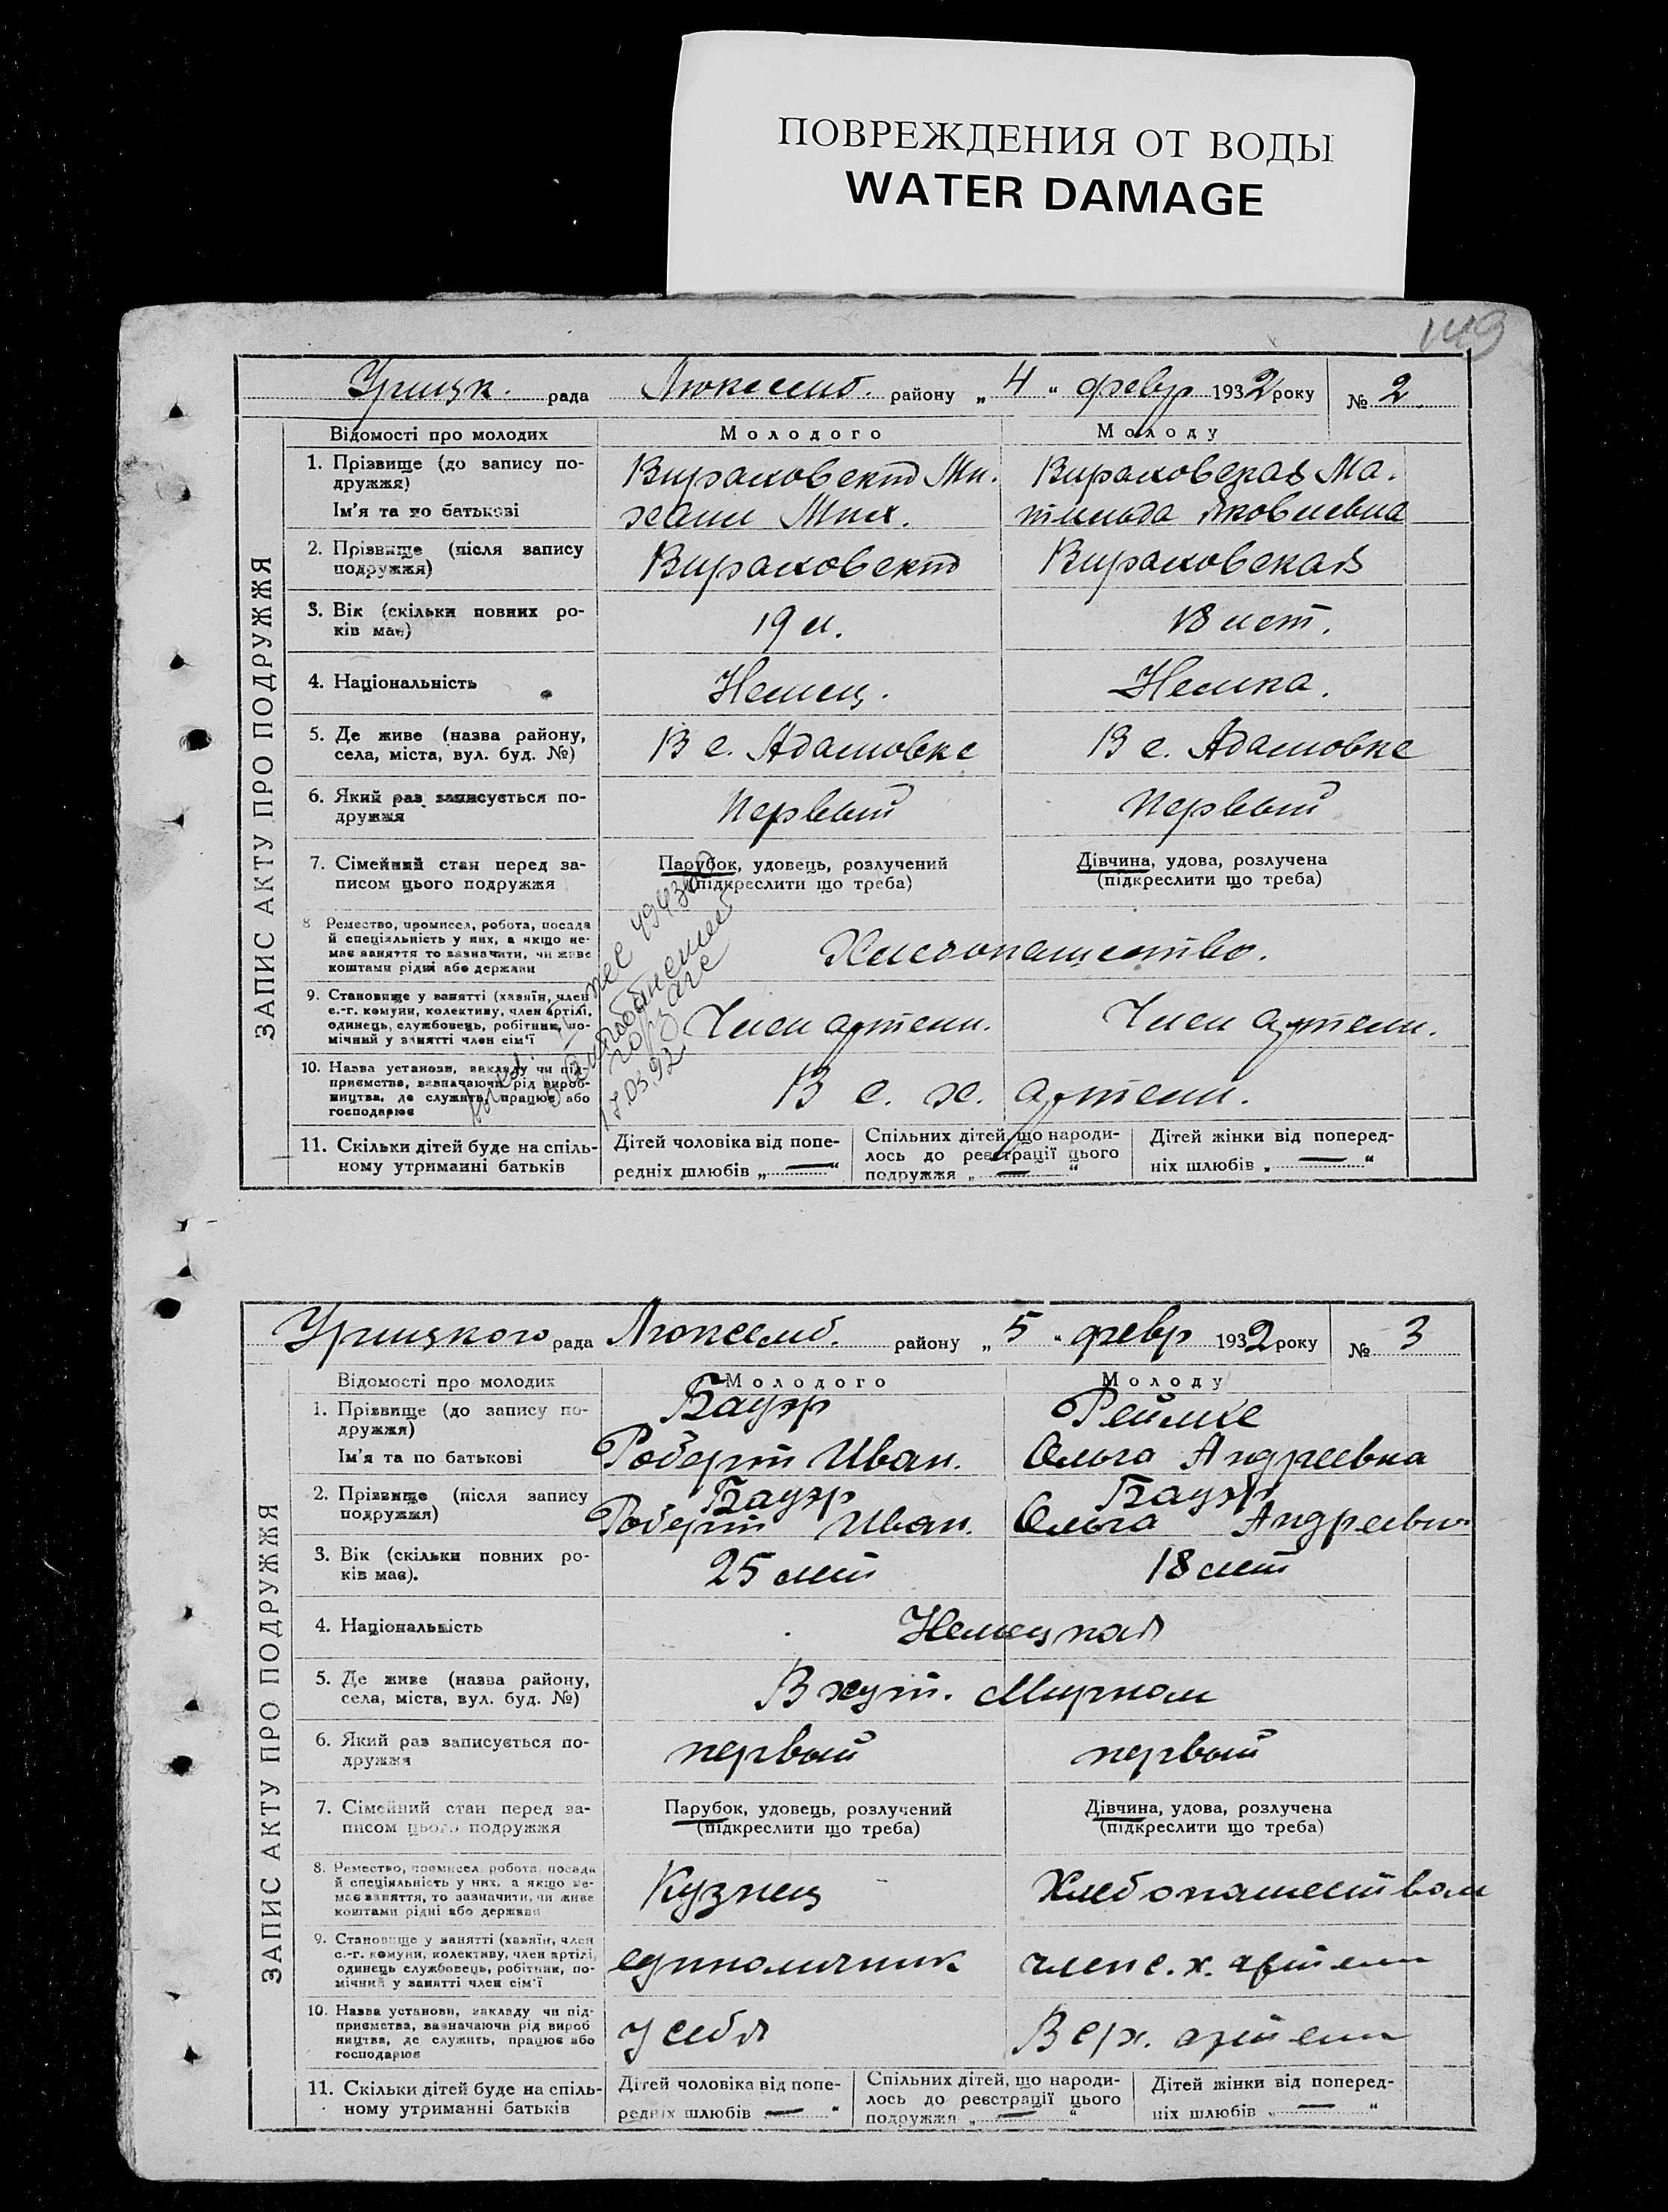 ПОВРЕЖДЕНИЯ ОТ ВОДЫ
WATER DAMAGE
149
Урицк. рада Люксемб. району „ 4 " февр 1932 року № 2
ЗАПИС АКТУ ПРО ПОДРУЖЖЯ
Відомості про молодих Молодого Молоду
1. Прізвище (до запису по-
дружжя)
Ім'я та по батькові
Ми.
хаил Мих.
Ма.
тильда Яковлевна
2. Прізвище (після запису
подружжя)
3. Вік (скільки повних ро-
ків має)
19 л. 18 лет.
4. Національність Немец. Немка.
5. Де живе (назва району,
села, міста, вул. буд. №)
В с. Адамовке В с. Адамовке
6. Який раз записується по-
дружжя
Первый Первый
7. Сімейний стан перед за-
писом цього подружжя
Парубок, удовець, розлучений
(підкреслити що треба)
Дівчина, удова, розлучена
(підкреслити що треба)
8 Ремество, промисел, робота, посада
й спеціяльність у них, а якщо не-
має заняття то зазначити, чи живе
коштами рідні або держави
Хлебопашество.
9. Становище у занятті (хазяїн, член
с.-г. комуни, колективу, член артілі,
одинець, службовець, робітник, по-
мічний у занятті член сім'ї
Член артели. Член артели.
10. Назва установи, закладу чи під-
приємства, зазначаючи рід вироб-
ництва, де служить, працює або
господарює
В с. х. артели.
17.03.92.
11. Скільки дітей буде на спіль-
ному утриманні батьків
Дітей чоловіка від попе-
редніх шлюбів „ — "
Спільних дітей, що народи-
лось до реєстрації цього
подружжя „ — "
Дітей жінки від поперед-
ніх шлюбів „ — "
Урицкого рада Люксемб. району „ 5 " февр 1932 року № 3
ЗАПИС АКТУ ПРО ПОДРУЖЖЯ
Відомості про молодих Молодого Молоду
1. Прізвище (до запису по-
дружжя)
Ім'я та по батькові
Бауэр
Роберт Иван.
Реймке
Ольга Андреевна
2. Прізвище (після запису
подружжя)
Бауэр
Роберт Иван.
Бауэр
Ольга Андреевна
3. Вік (скільки повних ро-
ків має).
25 лет 18 лет
4. Національність Немецкая
5. Де живе (назва району,
села, міста, вул. буд. №)
В хут. Мирном
6. Який раз записується по-
дружжя
первый первый
7. Сімейний стан перед за-
писом цього подружжя
Парубок, удовець, розлучений
(підкреслити що треба)
Дівчина, удова, розлучена
(підкреслити що треба)
8. Ремество, промисел робота, посада
й спеціяльність у них, а якщо не-
має заняття, то зазначити, чи живе
коштами рідні або держави
Кузнец Хлебопашеством
9. Становище у занятті (хазяїн, член
с.-г. комуни, колективу, член артілі,
одинець службовець, робітник, по-
мічний у занятті член сім'ї
единоличник член с. х. артели
10. Назва установи, закладу чи під-
приємства, зазначаючи рід вироб
ництва, де служить, працює або
господарює
у себя В с/х. артели
11. Скільки дітей буде на спіль-
ному утриманні батьків
Дітей чоловіка від попе-
редніх шлюбів „ — "
Спільних дітей, що народи-
лось до реєстрації цього
подружжя „ — "
Дітей жінки від поперед-
ніх шлюбів „ — "